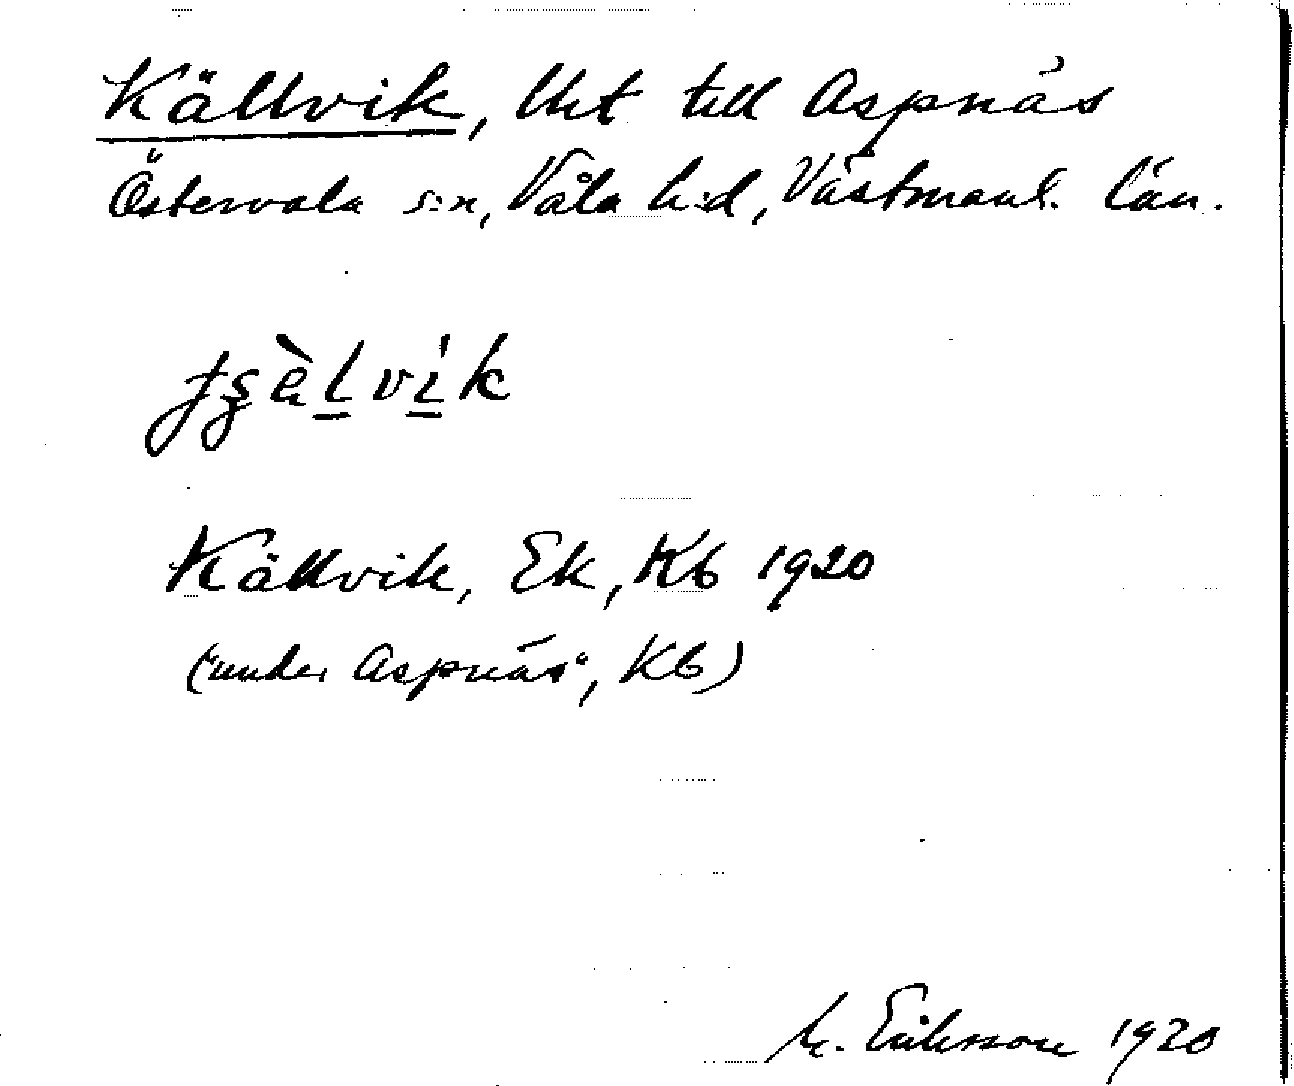 Källvik, Uts till Aspnäs
Östervala s:n, Våla h:d, Västmanl. län.
Källvik, Ek, Kb 1920
("under Aspnäs", Kb)
M. Eriksson 1920